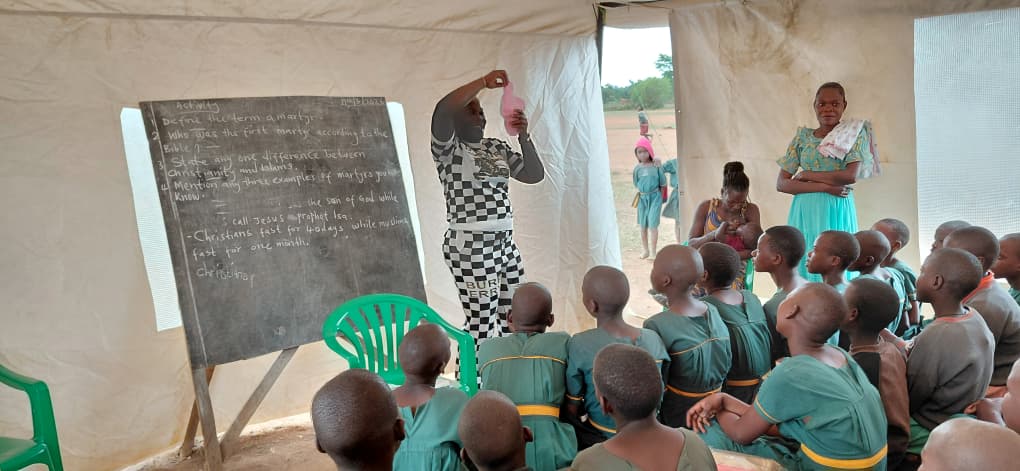 Activity
Define the term a martyr.
2. Who was the first martyr according to the
Bible?
3. State any one difference between
christianity and Islams.
4. Mention any three examples of martyrs you
know.
the son of God while
call Jesus prophet Isa.
- Christians fast for 40 days while
fast for one month.
BUR
ERR